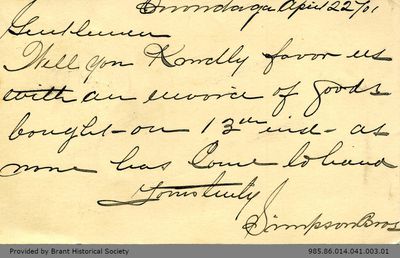 Onondaga April 22/01
Gentlemen
Will you Kindly favor us
with an invoice of goods
bought on 13th inst - as
none has Come to hand
Yours truly
Simpson Bros
Provided by Brant Historical Society 985.86.014.041.003.01